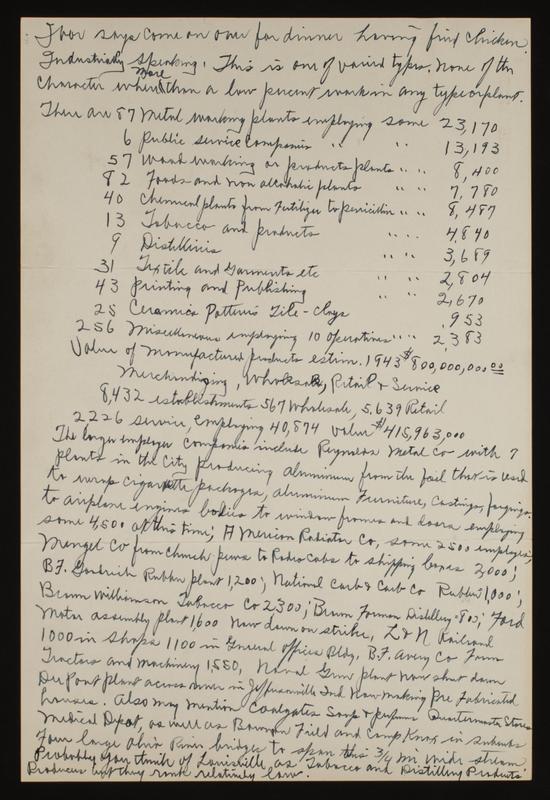 Thor says come on over for dinner having fried chicken.
Industrially speaking, This is one of varied types. None of the
more
character when than a low percent work in any type or plant.
There are 87 Metal working plants employing some 23,170
6 Public service Companies " " 13,193
57 Wood working or products plants " " 8,400
82 Foods and non alcoholic plants " " 7,780
40 Chemical plants from Fertilizer to penicillin " " 8,487
13 Tobacco and products " " 4,840
9 Distilleries 3,689
31 Textile and Garments etc " " 2,804
43 Printing and Publishing " " 2,670
25 Ceramics Potteries Tile-clays .953
256 Miscellaneous employing 10 operatives " " 2,383
Value of manufactured products estim. 1943 $800,000,000.00
Merchandising, Wholesale, Retail & Service
8,432 establishments 567 Wholesale, 5,639 Retail
2226 service, employing 40,874 value $415,963,000
The larger employer companies include Reynolds Metal Co with 7
plants in the City producing aluminum from the foil that is used
to wrap cigarette packages, aluminum Furniture, Castings, forgings,
to airplane engines bodies to window frames and doors employing
some 4,500 at this time; American Radiator Co, some 2500 employees;
Mengel Co from church pews to Radio Cabs to shipping boxes 2,000;
B.F. Goodrich Rubber plant 1,200; National Carb & Carb Co Rubber 1,000;
Brown Williamson Tobacco Co 2300; Brown Forman Distillery 800; Ford
Motor assembly plant 1,600 now down on strike, L & N Railroad
1000 in shops 1100 in General offices Bldg, B.F. Avery Co Farm
Tractors and Machinery 1,550, Naval Gun plant now shut down
DuPont plant across river in Jeffersonville Ind. now making Pre Fabricated
houses. Also may mention Coalgates Soap & perfume Quartermaster Stores
Medical Depot, as well as Bowman Field and Camp Knox in suburbs
Four large Ohio River bridges to span this 3/4 mi wide stream.
Probably you think of Louisville as Tobacco and Distilling Products
Producers but they rank relatively low.